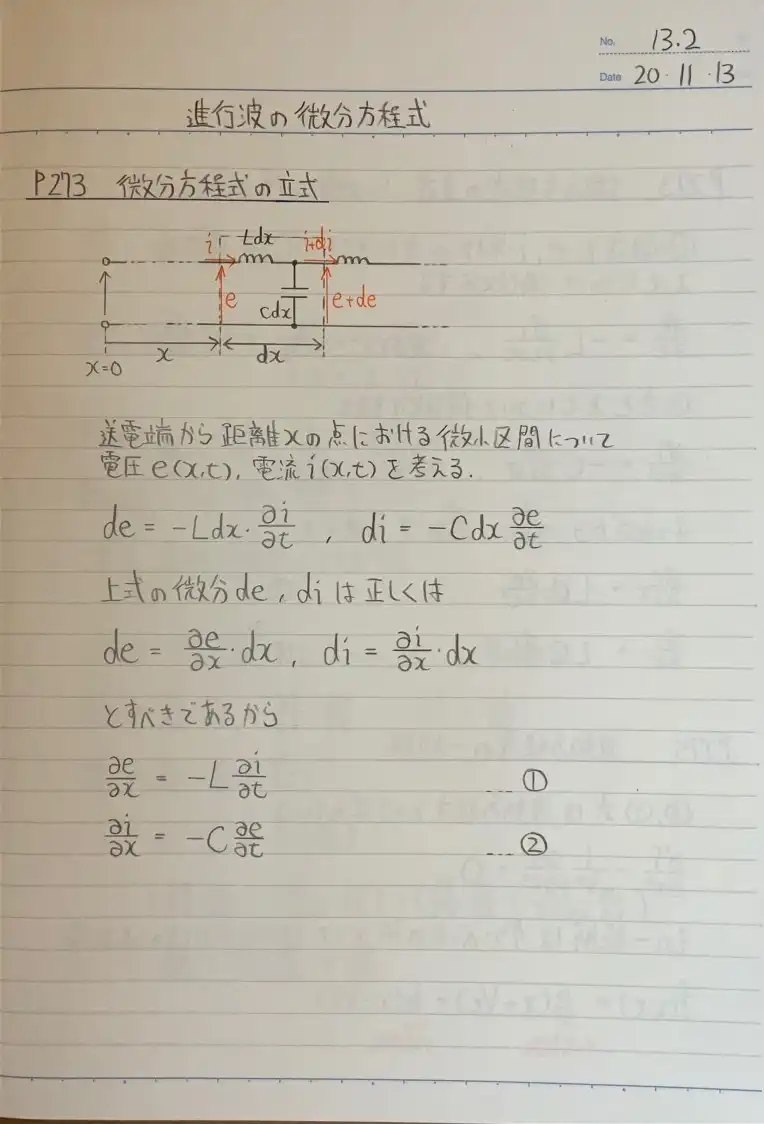 No. 13.2
Date 20・11・13
進行波の微分方程式
P273 微分方程式の立式
i Ldx i+di
e Cdx e+de
x dx
x=0
送電端から距離xの点における微小区間について
電圧e(x,t), 電流i(x,t)を考える.
de = -Ldx・∂i/∂t , di = -Cdx ∂e/∂t
上式の微分de, diは正しくは
de = ∂e/∂x・dx, di = ∂i/∂x・dx
とすべきであるから
∂e/∂x = -L ∂i/∂t …①
∂i/∂x = -C ∂e/∂t …②